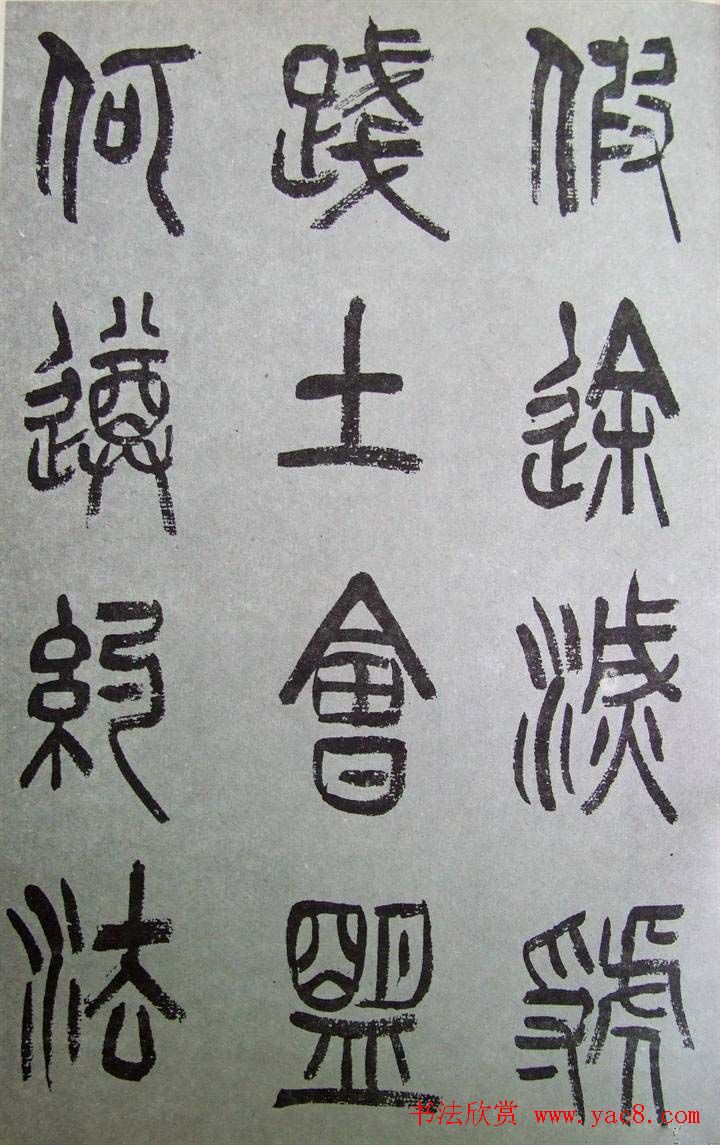 假途滅虢
踐土會盟
何遵約法
书法欣赏 www.yac8.com